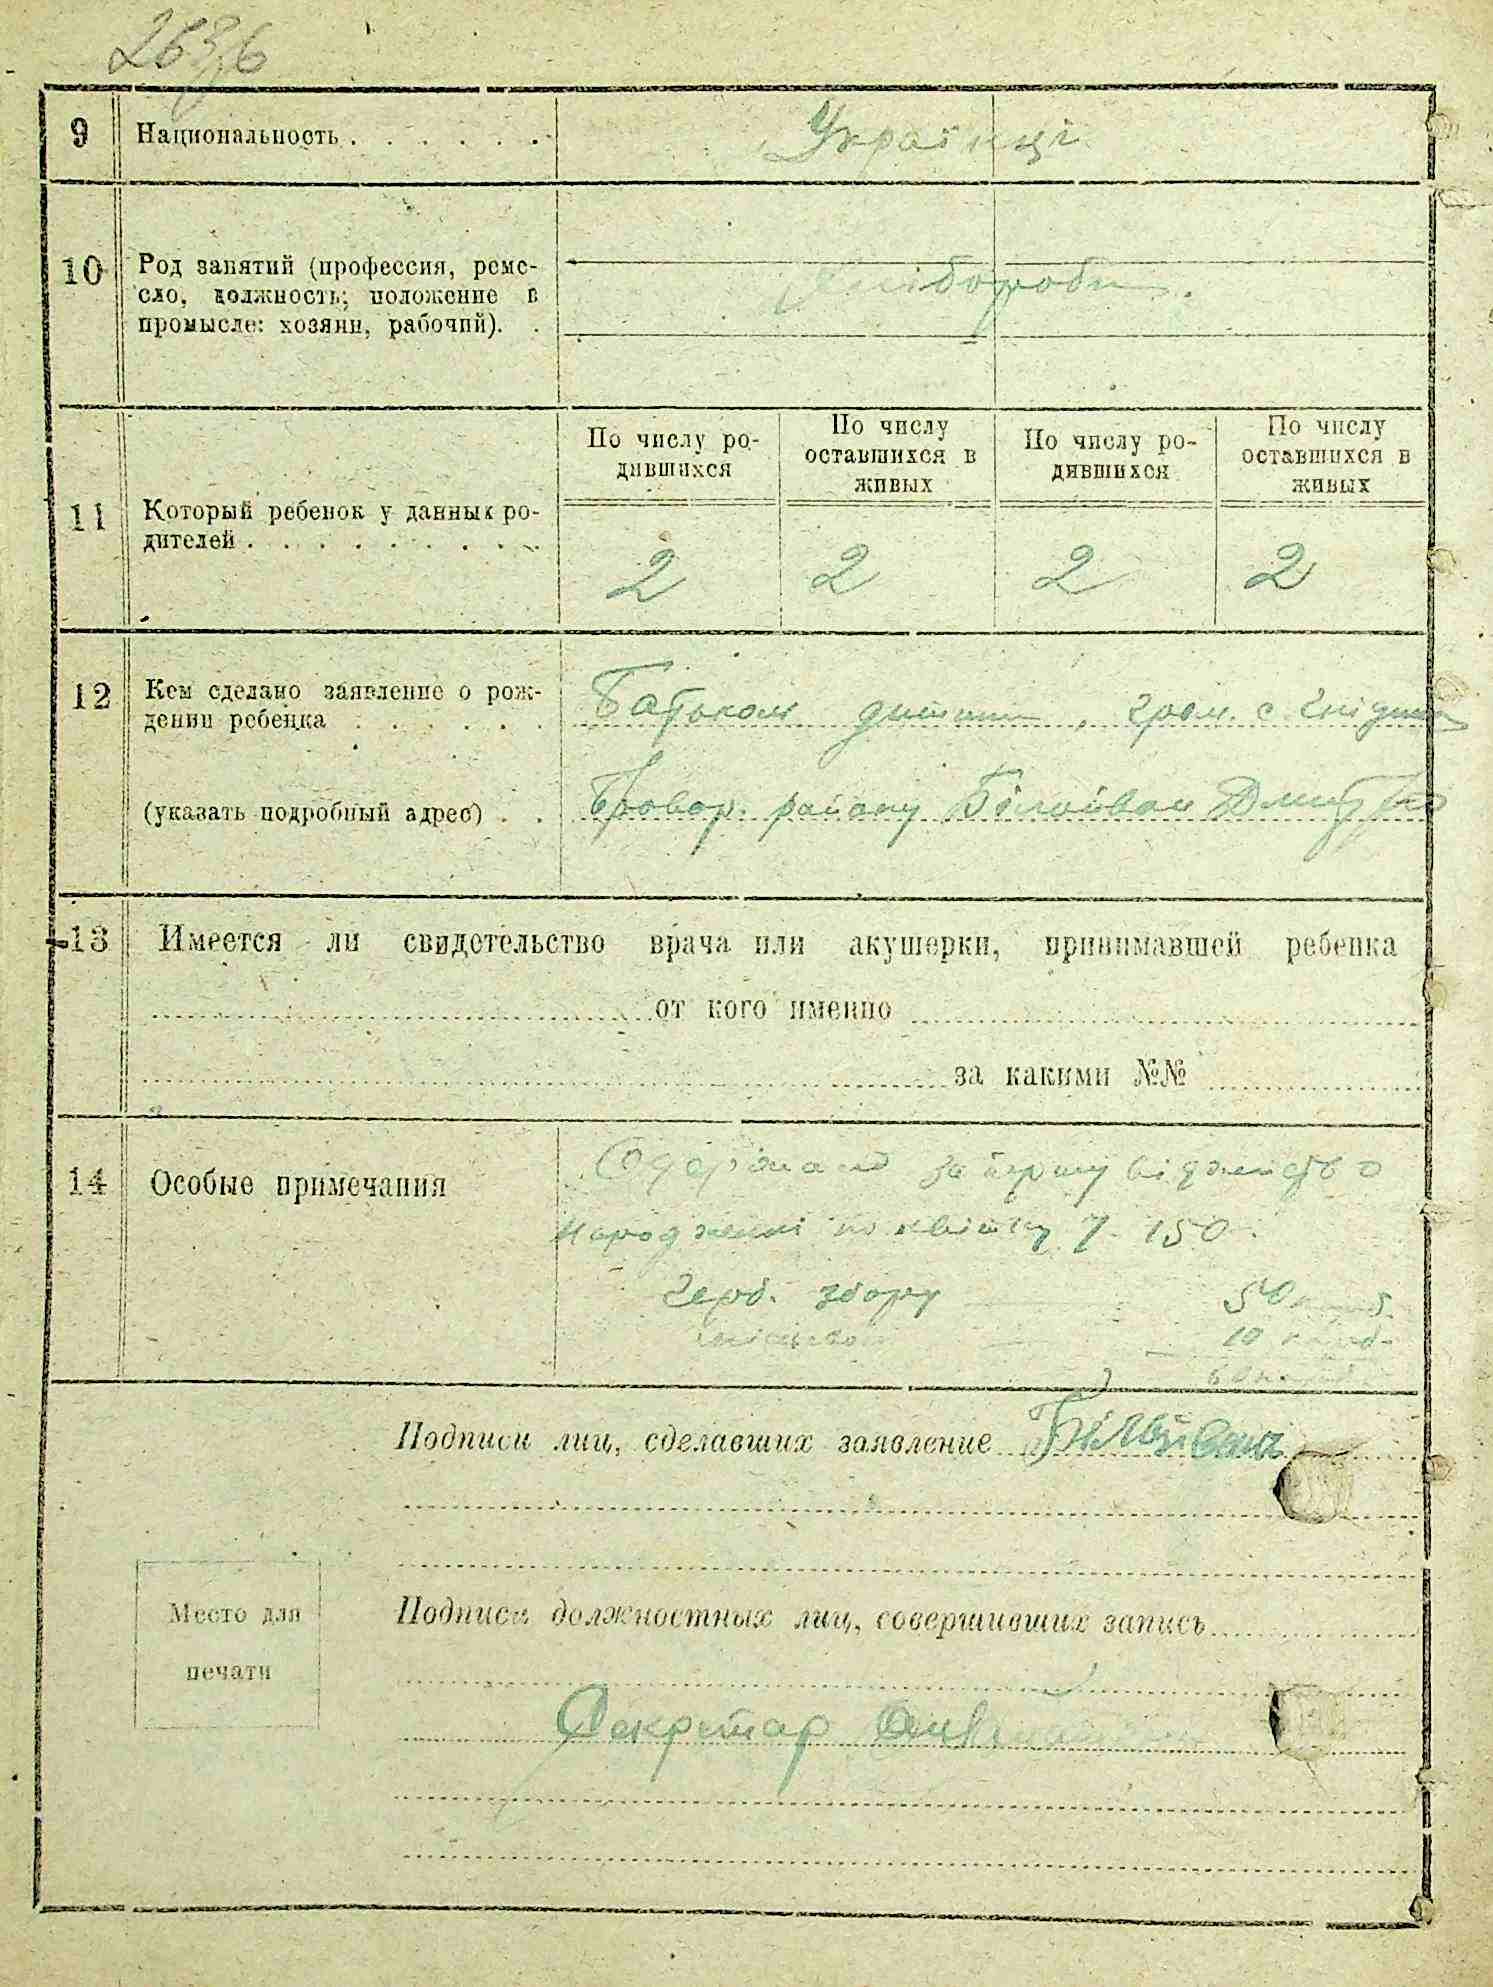 263/6
9 Национальность . . . . . . Українці
10 Род занятий (профессия, реме-
сло, должность; положение в
промысле: хозяин, рабочий). . Хлібороби.
По числу ро-
дившихся
По числу
оставшихся в
живых
По числу ро-
дившихся
По числу
оставшихся в
живых
11 Который ребенок у данных ро-
дителей . . . . . . . . .
2 2 2 2
12 Кем сделано заявление о рож-
дении ребенка . . . . . . Батьком дитини, гром. с. Гнідин
(указать подробный адрес) . . Бровар. району Білойван Дмитро
13 Имеется ли свидетельство врача или акушерки, принимавшей ребенка
от кого именно
за какими №№
14 Особые примечания
Одержано за першу
народженні по квітку 150
герб. збору 50 карб.
10 карб.
60
Подписи лиц, сделавших заявление Білойван
Место для
печати
Подписи должностных лиц, совершивших запись
Секретар